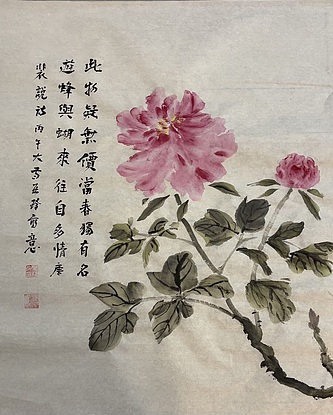 此物疑無價當春獨有名
遊蜂與蝴來往自多情唐
裴說詩丙午大雪玉珍寫意